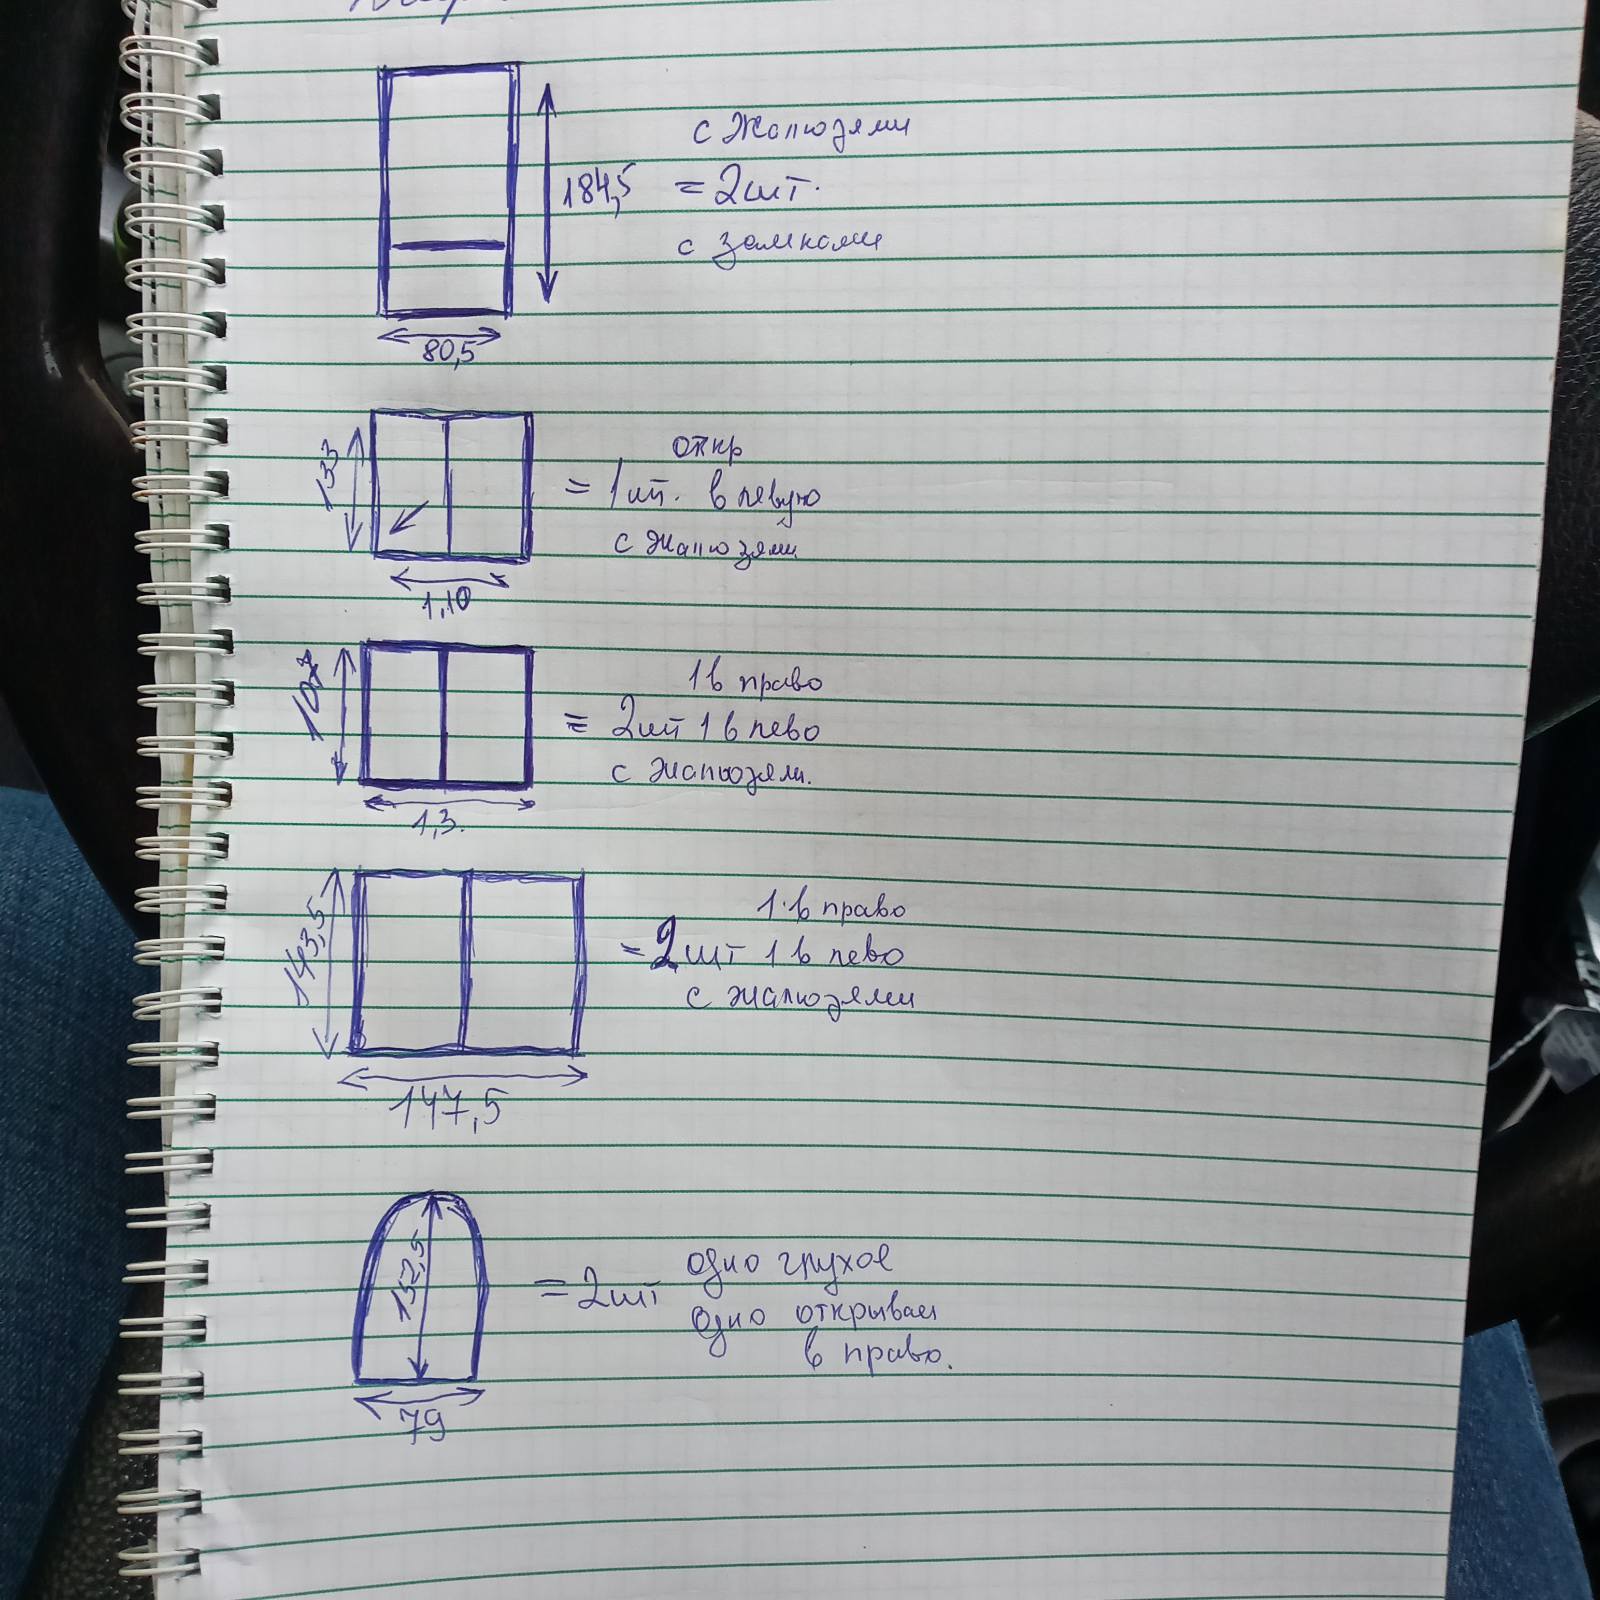 с жалюзями
184,5 = 2шт.
с замками
80,5
откр
133 = 1шт. в левую
с жалюзями
1,10
1 в право
= 2шт 1 в лево
с жалюзями.
1,3.
1 в право
143,5 = 2шт 1 в лево
с жалюзями
147,5
одно глухое
152,5 = 2шт
одно открывает
в право.
79